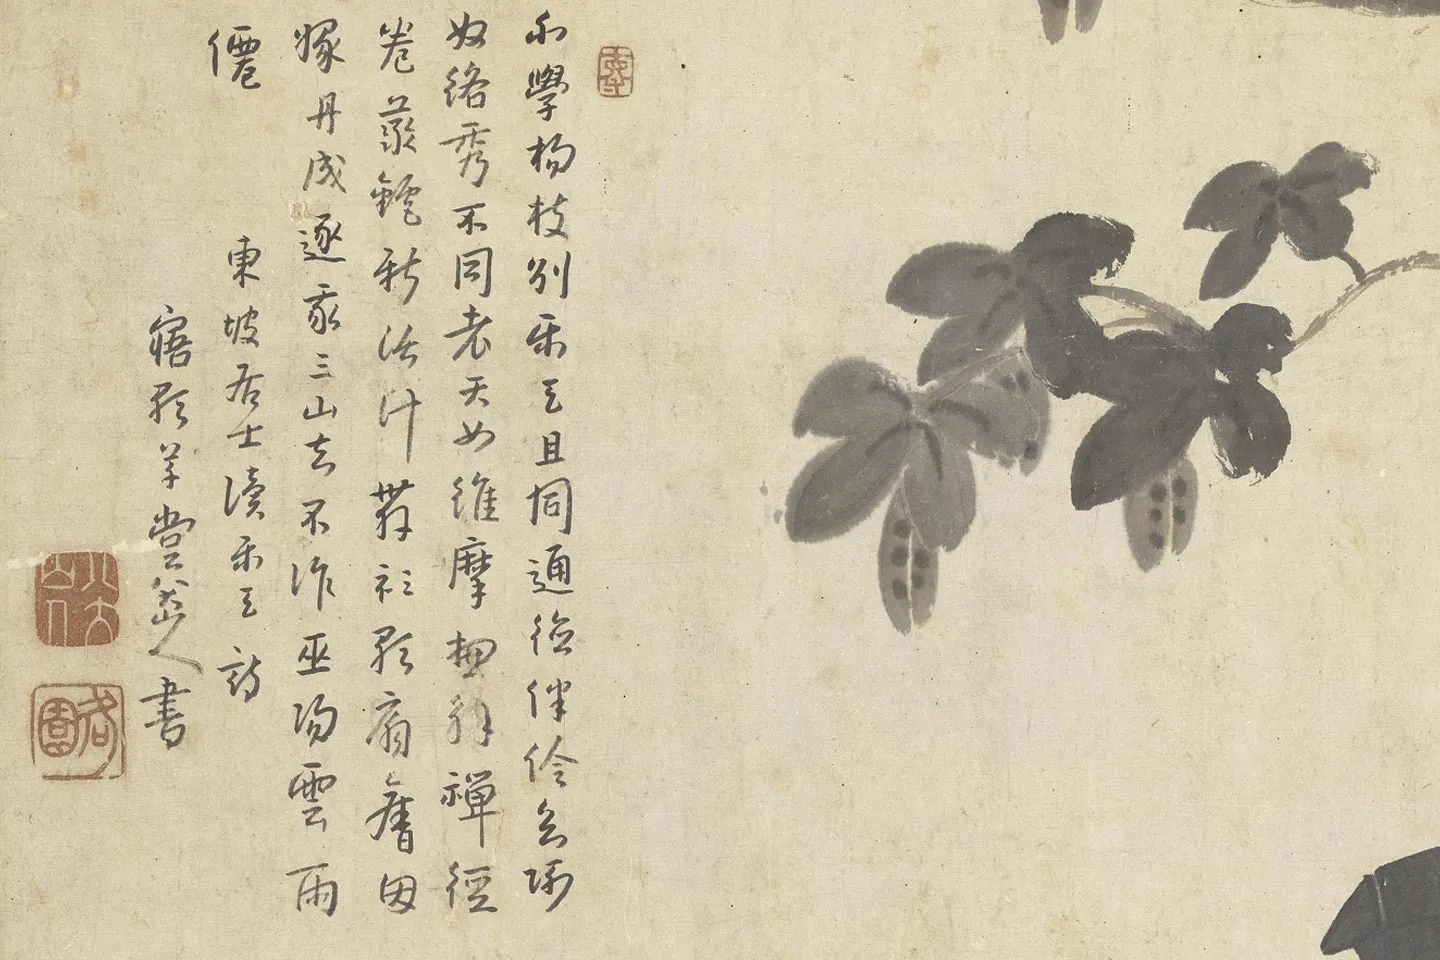 不學楊枝別樂天且同通德伴伶玄阿
奴絡秀不同老天女維摩總解禪經
卷藥鑪新活計舞衫歌扇舊因
緣丹成逐我三山去不作巫陽雲雨
僊
東坡居士讀樂天詩
寤歌草堂八大山人書